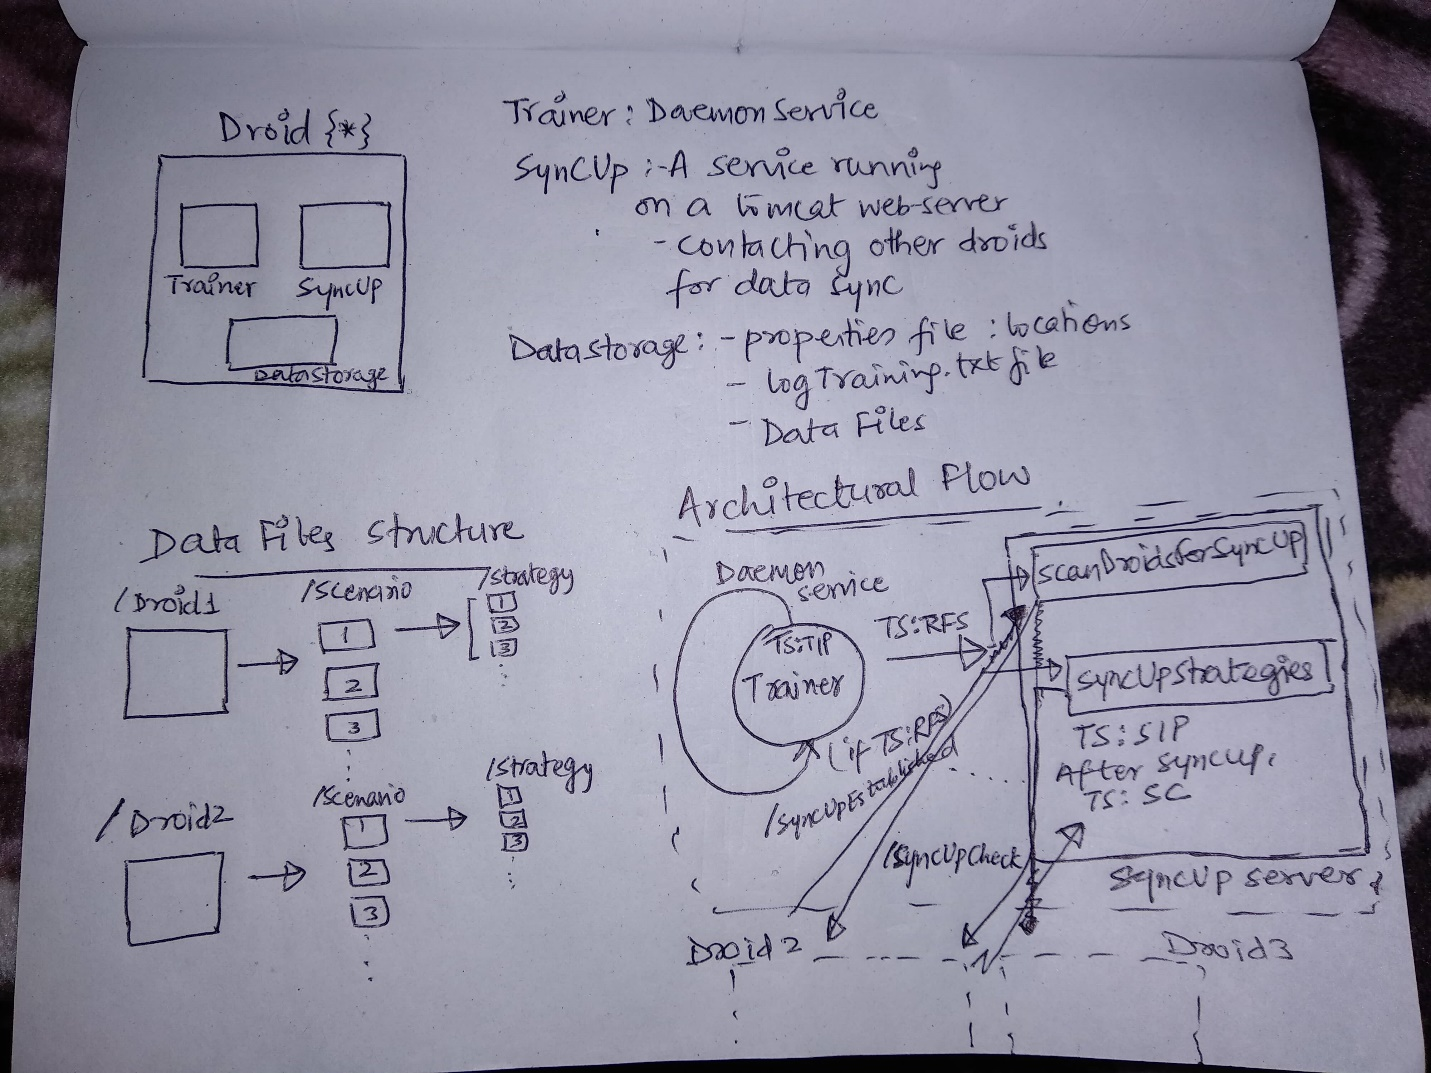 Droid {*}
Trainer
SyncUp
Datastorage
Trainer : Daemon Service
SynCUp :- A service running
on a tomcat web-server
- contacting other droids
for data sync
Datastorage : - properties file : locations
- logTraining.txt file
- Data Files
Data Files Structure
/Droid1
/Scenario
/strategy
1
2
3
1
2
3
/Droid2
/Scenario
/strategy
1
2
3
1
2
3
Architectural Flow
Daemon
service
TS:TIP
Trainer
TS:RFS
(if TS:RFS)
/syncUpEstablished
/SyncUpCheck
scanDroidsForSyncUp
syncUpStrategies
TS: SIP
After SyncUp,
TS: SC
SyncUp server
Droid2
Droid3